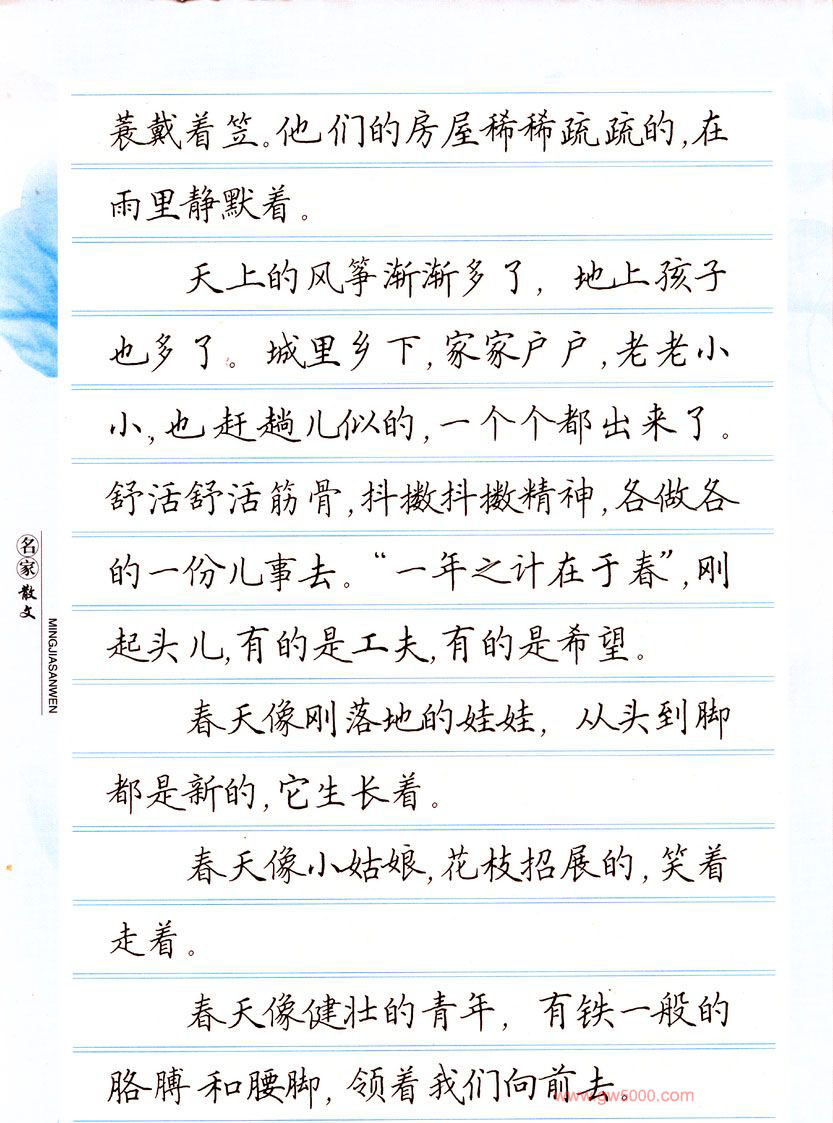 蓑戴着笠。他们的房屋稀稀疏疏的,在
雨里静默着。
天上的风筝渐渐多了,地上孩子
也多了。城里乡下,家家户户,老老小
小,也赶趟儿似的,一个个都出来了。
舒活舒活筋骨,抖擞抖擞精神,各做各
的一份儿事去。“一年之计在于春”,刚
起头儿,有的是工夫,有的是希望。
春天像刚落地的娃娃,从头到脚
都是新的,它生长着。
春天像小姑娘,花枝招展的,笑着
走着。
春天像健壮的青年,有铁一般的
胳膊和腰脚,领着我们向前去。
名家散文
MINGJIASANWEN
www.gw5000.com